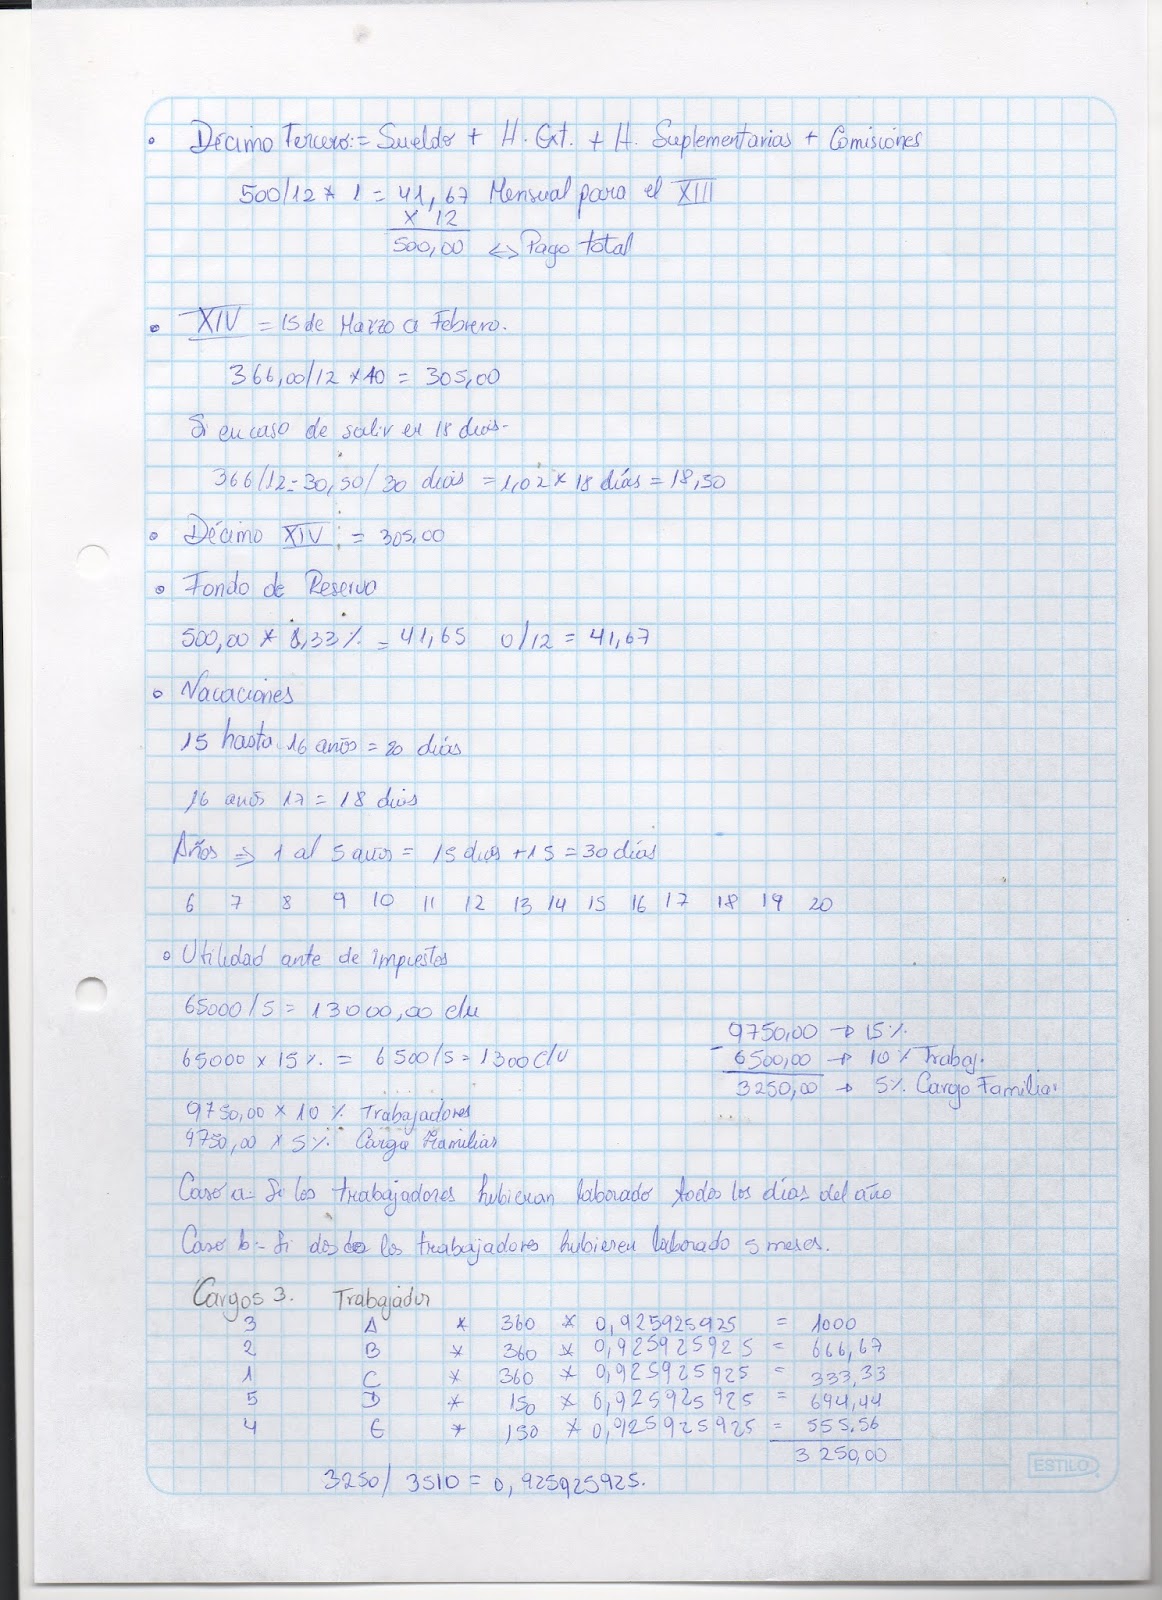 • Décimo Tercero:= Sueldo + H. Ext. + H. Suplementarias + Comisiones
500/12 * 1 = 41,67 Mensual para el XIII
x 12
500,00 <-> Pago total
• XIV = 15 de Marzo a Febrero.
366,00/12 * 10 = 305,00
Si en caso de salir en 18 dias-
366/12=30,50/30 dias = 1,02 * 18 días = 18,30
• Décimo XIV = 305,00
• Fondo de Reserva
500,00 * 8,33% = 41,65 0/12 = 41,67
• Vacaciones
15 hasta 16 años = 20 dias
16 años 17 = 18 dias
Años => 1 al 5 años = 15 dias + 15 = 30 dias
6 7 8 9 10 11 12 13 14 15 16 17 18 19 20
• Utilidad ante de impuestos
65000/5 = 13000,00 c/u
65000 x 15% = 6500/5 = 1300 c/u
9750,00 -> 15%
- 6500,00 -> 10% Trabaj.
3250,00 -> 5% Cargo Familiar
9750,00 * 10% Trabajadores
9750,00 * 5% Carga Familias
Caso a- Si los trabajadores hubieran laborado todos los días del año
Caso b- Si dos de los trabajadores hubieren laborado 5 meses.
Cargos 3. Trabajador
3 A * 360 * 0,925925925 = 1000
2 B * 360 * 0,925925925 = 666,67
1 C * 360 * 0,925925925 = 333,33
5 D * 150 * 0,925925925 = 694,44
4 E * 150 * 0,925925925 = 555.56
3 250,00
3250/ 3510 = 0,925925925.
ESTILO